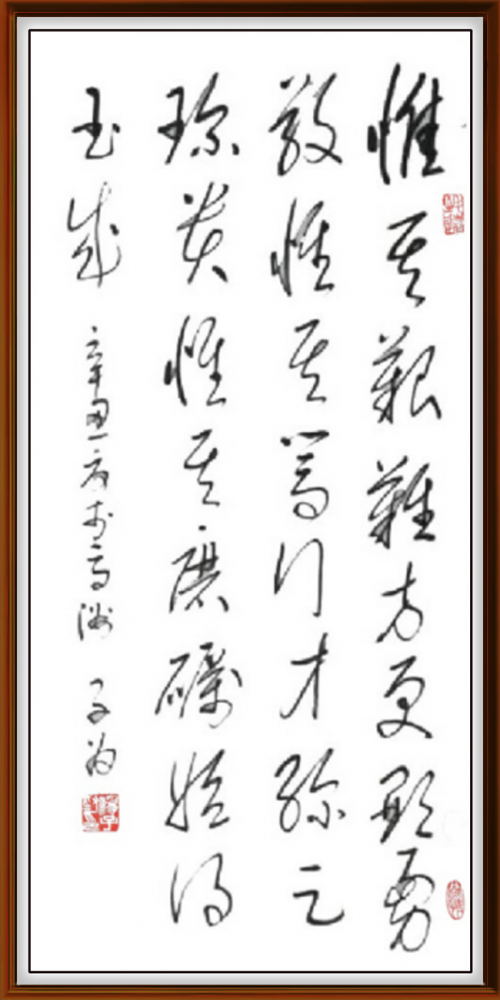 惟其艱難方更顯勇
毅惟其篤行才弥足
珍貴惟其磨礪始得
玉成 辛丑 於高洲 子為